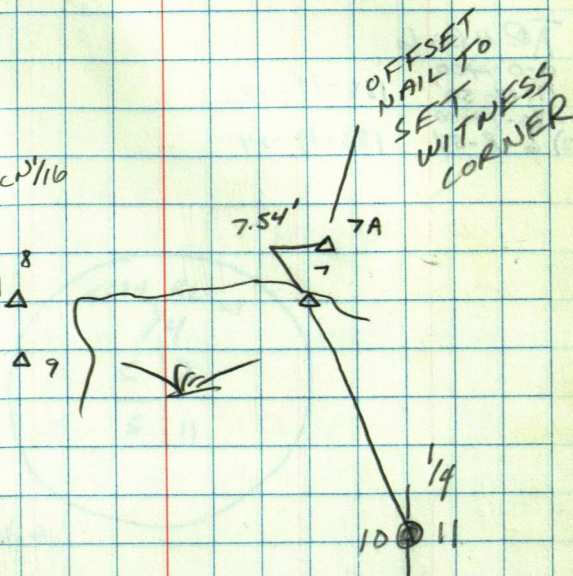 OFFSET
NAIL TO
SET
WITNESS
CORNER
CN1/16
7.54'
7A
8
7
9
1/4
10 11